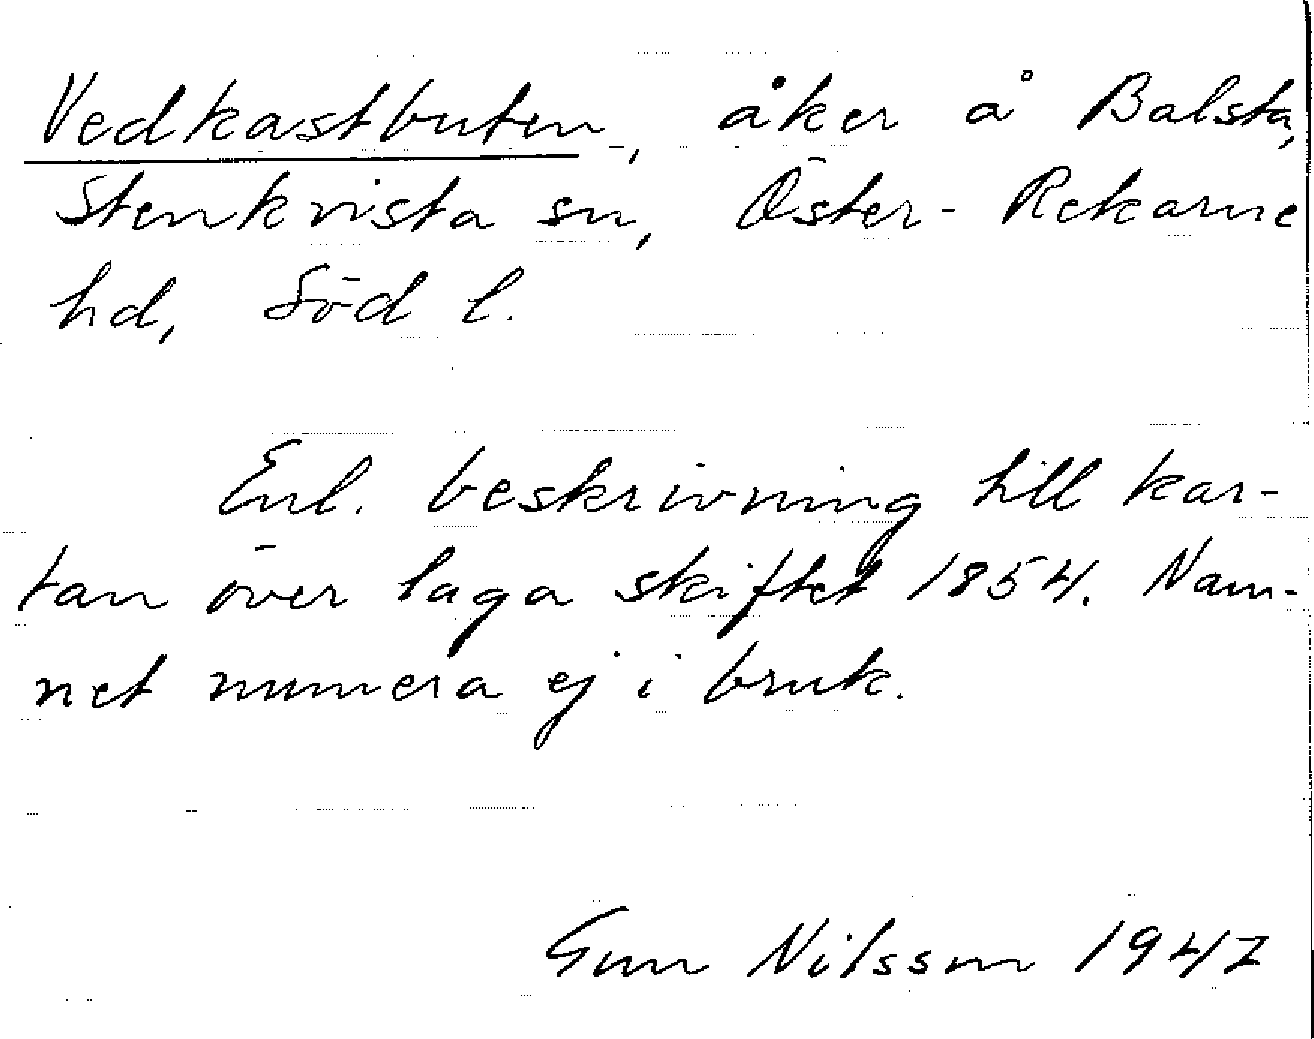 Vedkastbuten, åker å Balsta,
Stenkvista sn, Öster-Rekarne
hd, Söd l.
Enl. beskrivning till kar-
tan över laga skiftet 1854. Nam-
net numera ej i bruk.
Gun Nilsson 1947